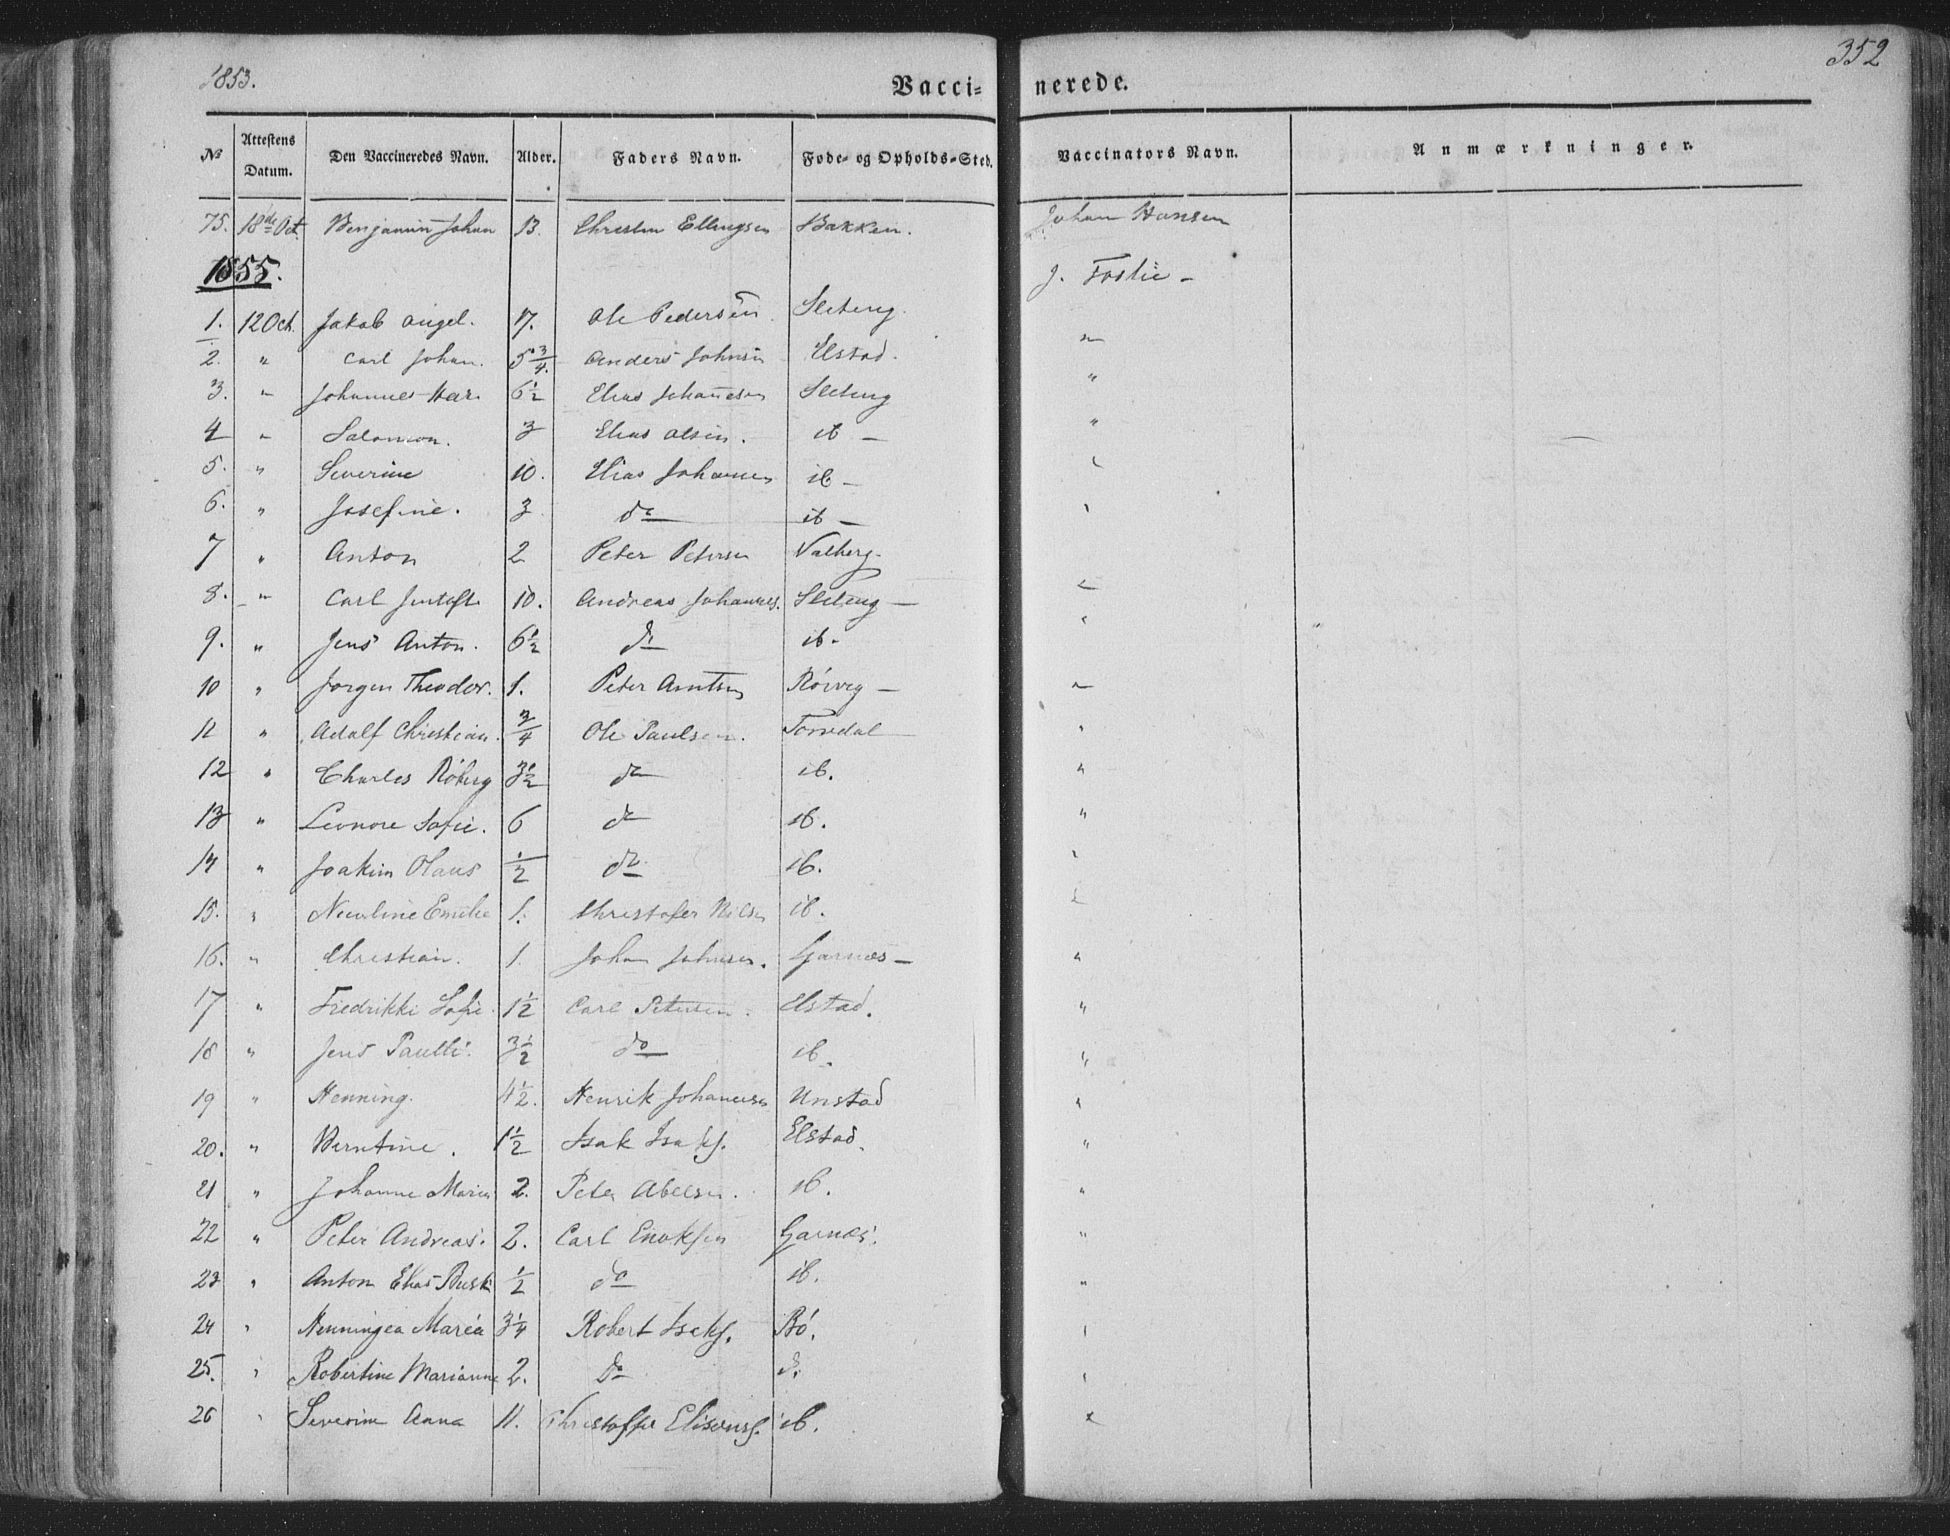 1853. Vaccinerede. 352
No Attestens Datum. Den Vaccineredes Navn. Alder. Faders Navn. Føde- og Opholds-Sted. Vaccinators Navn. Anmærkninger.
75. 18de Oct. Benjamin Johan 13. Ellingsen Bakken. Johan Hansen
1855. J. Foslie -
1. 12 Oct. Jakob Angel. 17. Ole Pedersen. "
2. " Carl Johan. 5 3/4. Anders Johnsen Elstad. "
3. " Johannes 6 1/2 Elias Johannesen "
4 " Salomon. 3 Elias Olsen. ib - "
5. " Severine 10. Elias Johannes ib - "
6. " Josefine. 3 do ib - "
7 " Anton 2 Peter Petersen Valberg.
8. " Carl Jentoft 10. Andreas Johannes. "
9. " Jens Anton. 6 1/2 do ib. "
10 " Jørgen Theodor. 1. Peter Arntsen "
11 " Adolf Christian. 3/4 Ole Paulsen. Torvdal "
12 " Charles 3 1/2 do ib. "
13 " Leonore Sofie. 6 do ib. "
14 " Joakim Olaus 1/2 do ib. "
15. " Emilie 1. Christofer Nilsen ib. "
16. " Christian. 1. Johan Johnsen. Garnæs - "
17 " Fredrikke Sofie. 1 1/2 Carl Petersen. Elstad. "
18 " Jens Paulli. 3 1/2 do ib. "
19 " Henning. 4 1/2. Henrik Johannesen Unstad "
20. " Berntine. 1 1/2 Isak Isaks. Elstad. "
21 " Johanne Maria 2. Peter Abelsen. ib. "
22 " Peter Andreas. 2. Carl Enoksen Garnæs. "
23 " Anton Elias 1/2 do ib. "
24 " Henningea Maria 3 1/4 Robert Isaks. Bø. "
25. " Robertine Marianne 2. do d. "
26 " Severine Anna 11. Christoffer ib. "